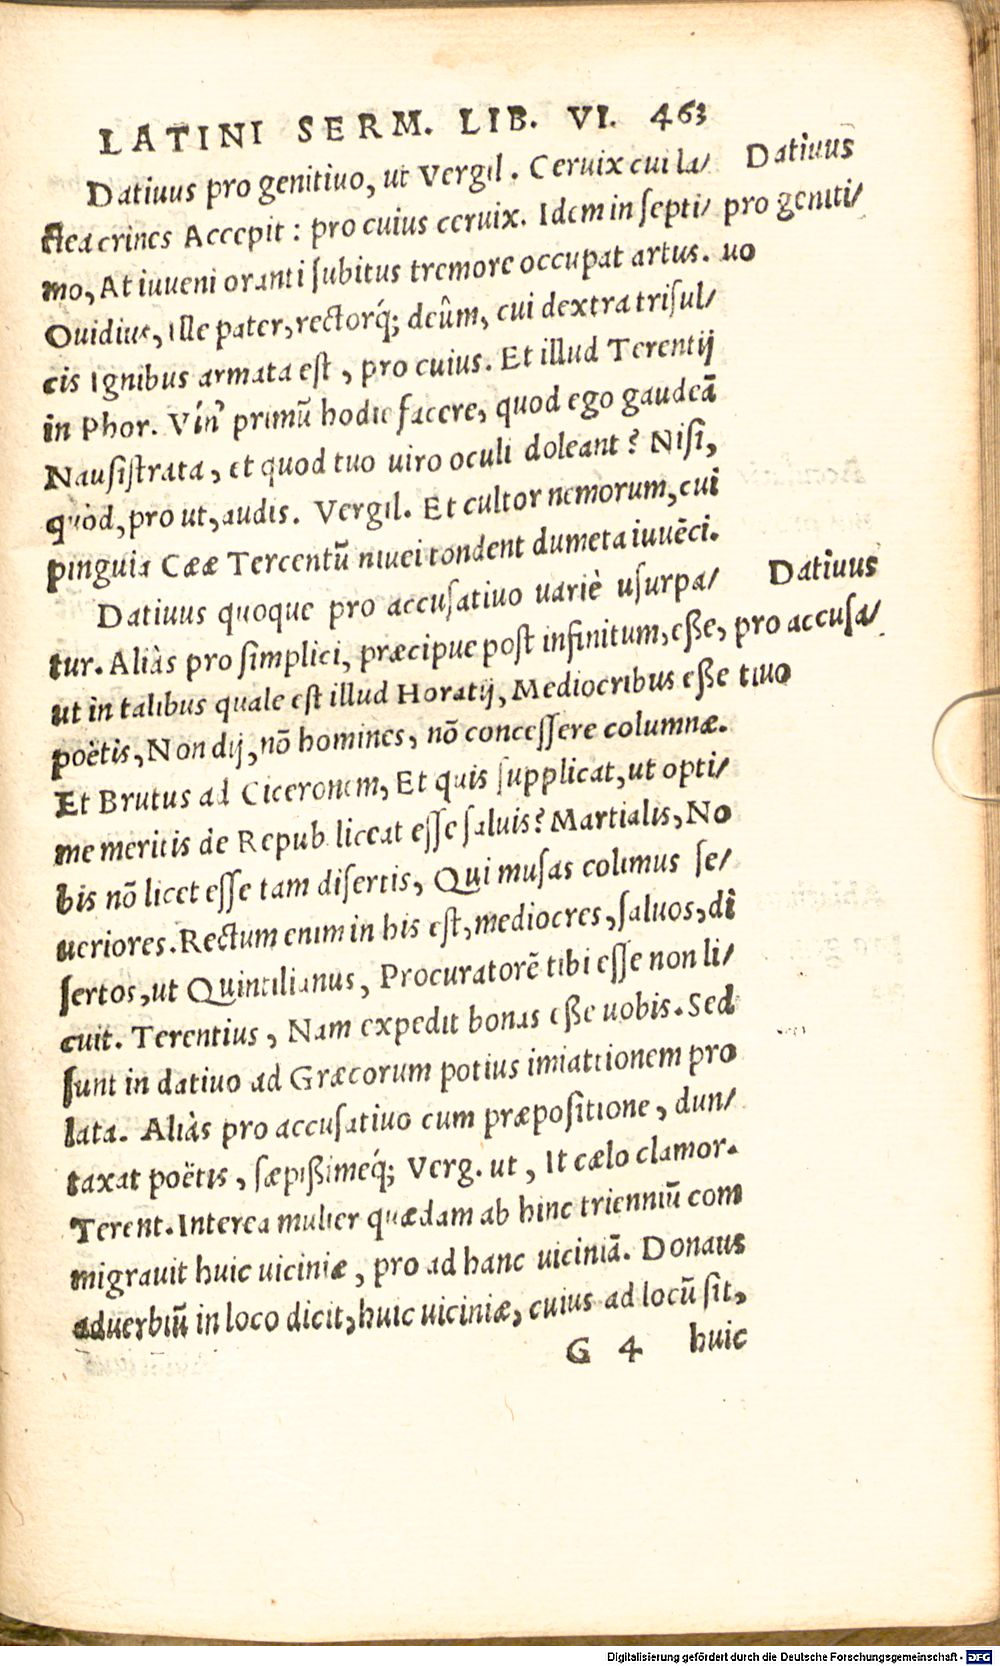 LATINI SERM. LIB. VI. 463
Datiuus pro genitiuo, ut Vergil. Ceruix cui la/
ctea crines Accepit: pro cuius ceruix. Idem in septi/
mo, At iuueni oranti subitus tremor e occupat artus.
Ouidius, ille pater, rectorq́; deûm, cui dextra trisul/
cis Ignibus armata est, pro cuius. Et illud Terentij
in Phor. Vín' primū hodie facere, quod ego gaudeā
Nausistrata, et quod tuo uiro oculi doleant? Nisi,
quòd, pro ut, audis. Vergil. Et cultor nemorum, cui
pinguia Cææ Tercentū niuei tondent dumeta iuuēci.
Datiuus quoque pro accusatiuo uariè usurpa/
tur. Aliàs pro simplici, præcipue post infinitum, eße,
ut in talibus quale est illud Horatij, Mediocribus eße
poëtis, Non dij, nō homines, nō concessere columnæ.
Et Brutus ad Ciceronem, Et quis supplicat, ut opti/
me meritis de Repub liceat esse saluis? Martialis, No
bis nō licet esse tam disertis, Qui musas colimus se/
ueriores. Rectum enim in his est, mediocres, saluos, di
sertos, ut Quintilianus, Procuratorē tibi esse non li/
cuit. Terentius, Nam expedit bonas eße uobis. Sed
sunt in datiuo ad Græcorum potius imiattionem pro
lata. Aliàs pro accusatiuo cum præpositione, dun/
taxat poëtis, sæpißimeq́; Verg. ut, It cælo clamor.
Terent. Interea mulier quædam ab hinc trienniū com
migrauit huic uiciniæ, pro ad hanc uiciniā. Donatus
aduerbiū in loco dicit, huic uiciniæ, cuius ad locū sit,
G 4 huic
Datiuus
pro geniti/
uo
Datiuus
pro accusa/
tiuo
Digitalisierung gefördert durch die Deutsche Forschungsgemeinschaft - DFG